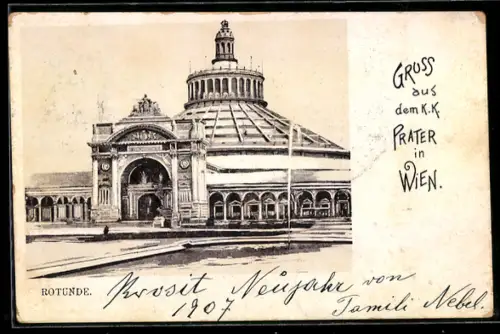 GRUSS
aus
dem K.K
PRATER
in
WIEN.
ROTUNDE.
Prosit Neujahr von
1907 Famili Nebel.